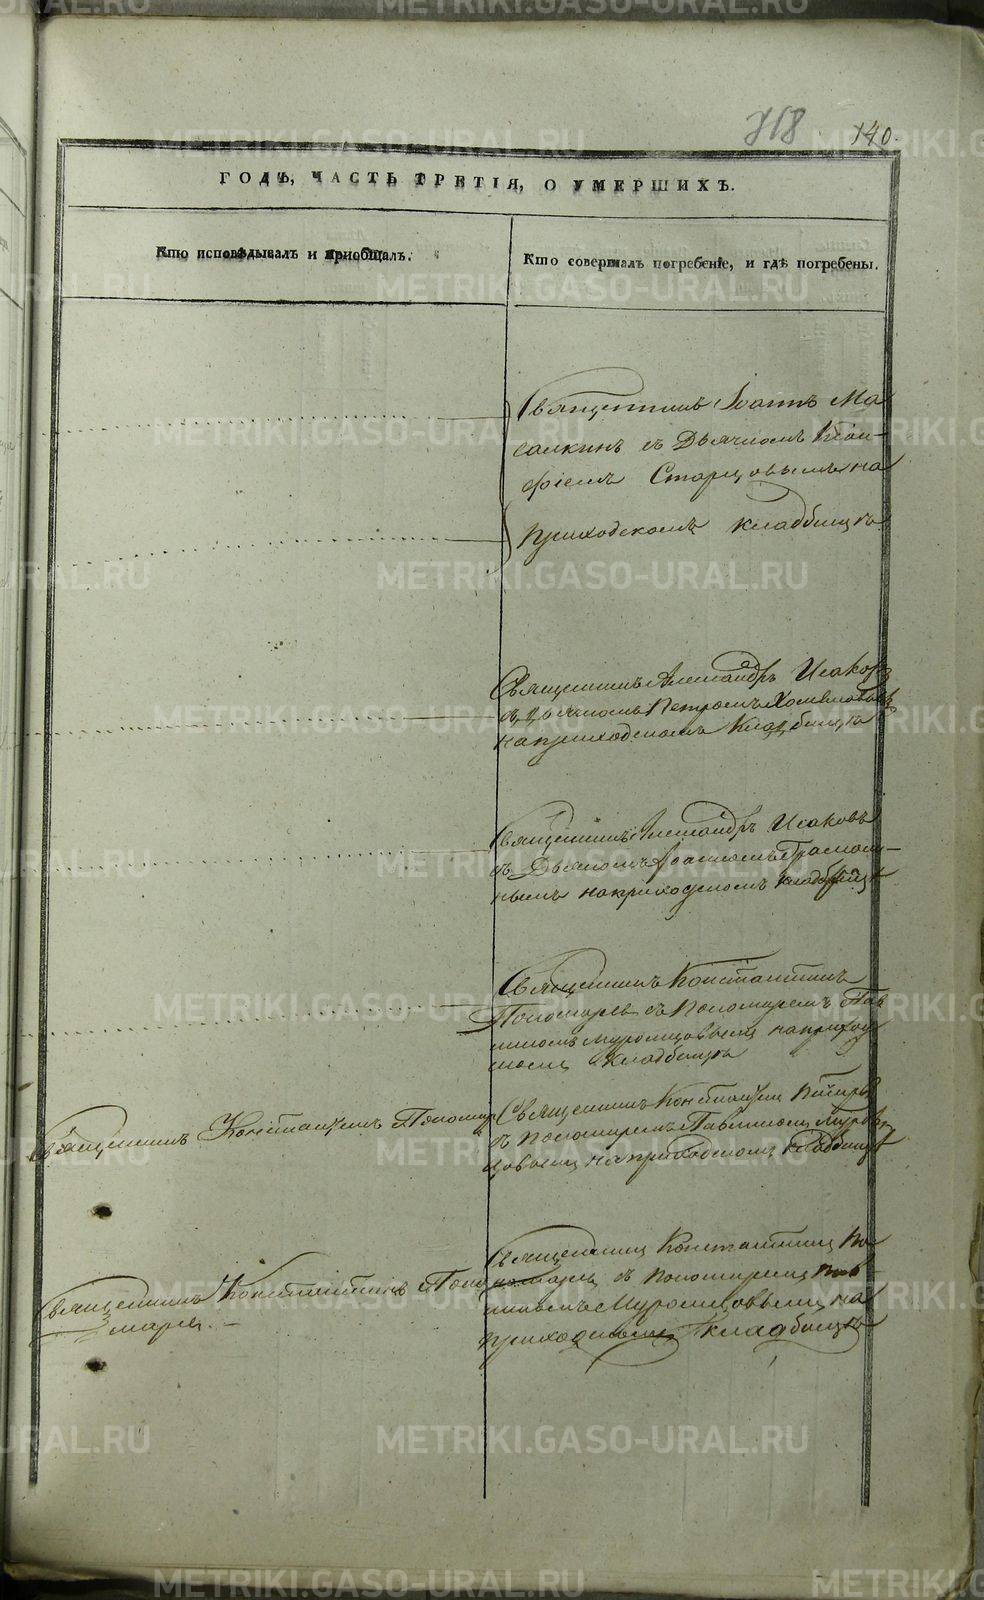 718 140.
ГОДЪ, ЧАСТЬ ТРЕТІЯ, О УМЕРШИХЪ.
Кто исповѣдывалъ и пріобщалъ.
Кто совершалъ погребеніе, и гдѣ погребены.
Священникъ Іоаннъ Ма
салкинъ съ Дьячкомъ
Старцовымъ на
приходскомъ кладбищѣ
Священникъ Александръ Исаковъ
съ Петромъ
на приходскомъ кладбищѣ
Священникъ Александръ Исаковъ
съ
нымъ на приходскомъ кладбищѣ
Священникъ Константинъ
Пономаревъ съ Пономаремъ Пав
линомъ Муромцовымъ на приход
скомъ кладбищѣ
Священникъ Константинъ Пономар
Священникъ Константинъ
съ Пономаремъ Павлиномъ Муром
цовымъ на приходскомъ кладбищѣ
Священникъ Константинъ Поно
марев
Священникъ Константинъ По
номаревъ съ Пономаремъ Пав
линомъ Муромцовымъ на
приходскомъ кладбищѣ
METRIKI.GASO-URAL.RU